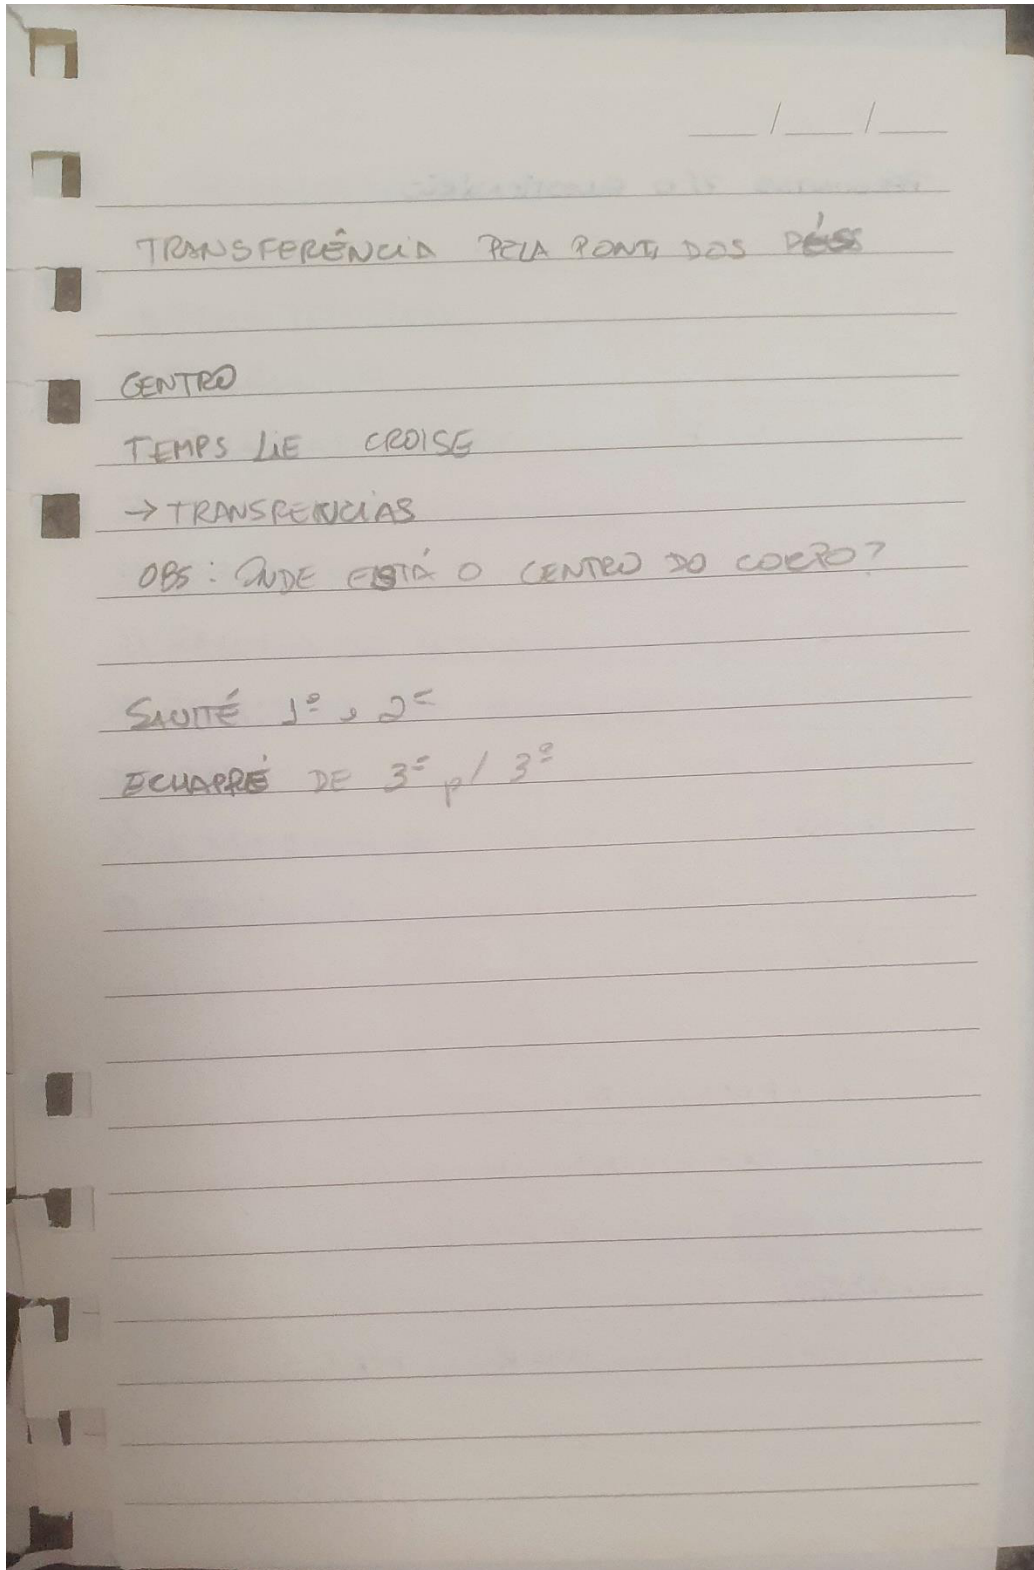 ___/___/___
TRANSFERÊNCIA PELA PONTA DOS PÉS
CENTRO
TEMPS LIE CROISE
→ TRANSFENCIAS
OBS: ONDE ESTÁ O CENTRO DO CORPO?
SAUTÉ 1ª, 2ª
ECHAPPÉ DE 3ª p/ 3ª